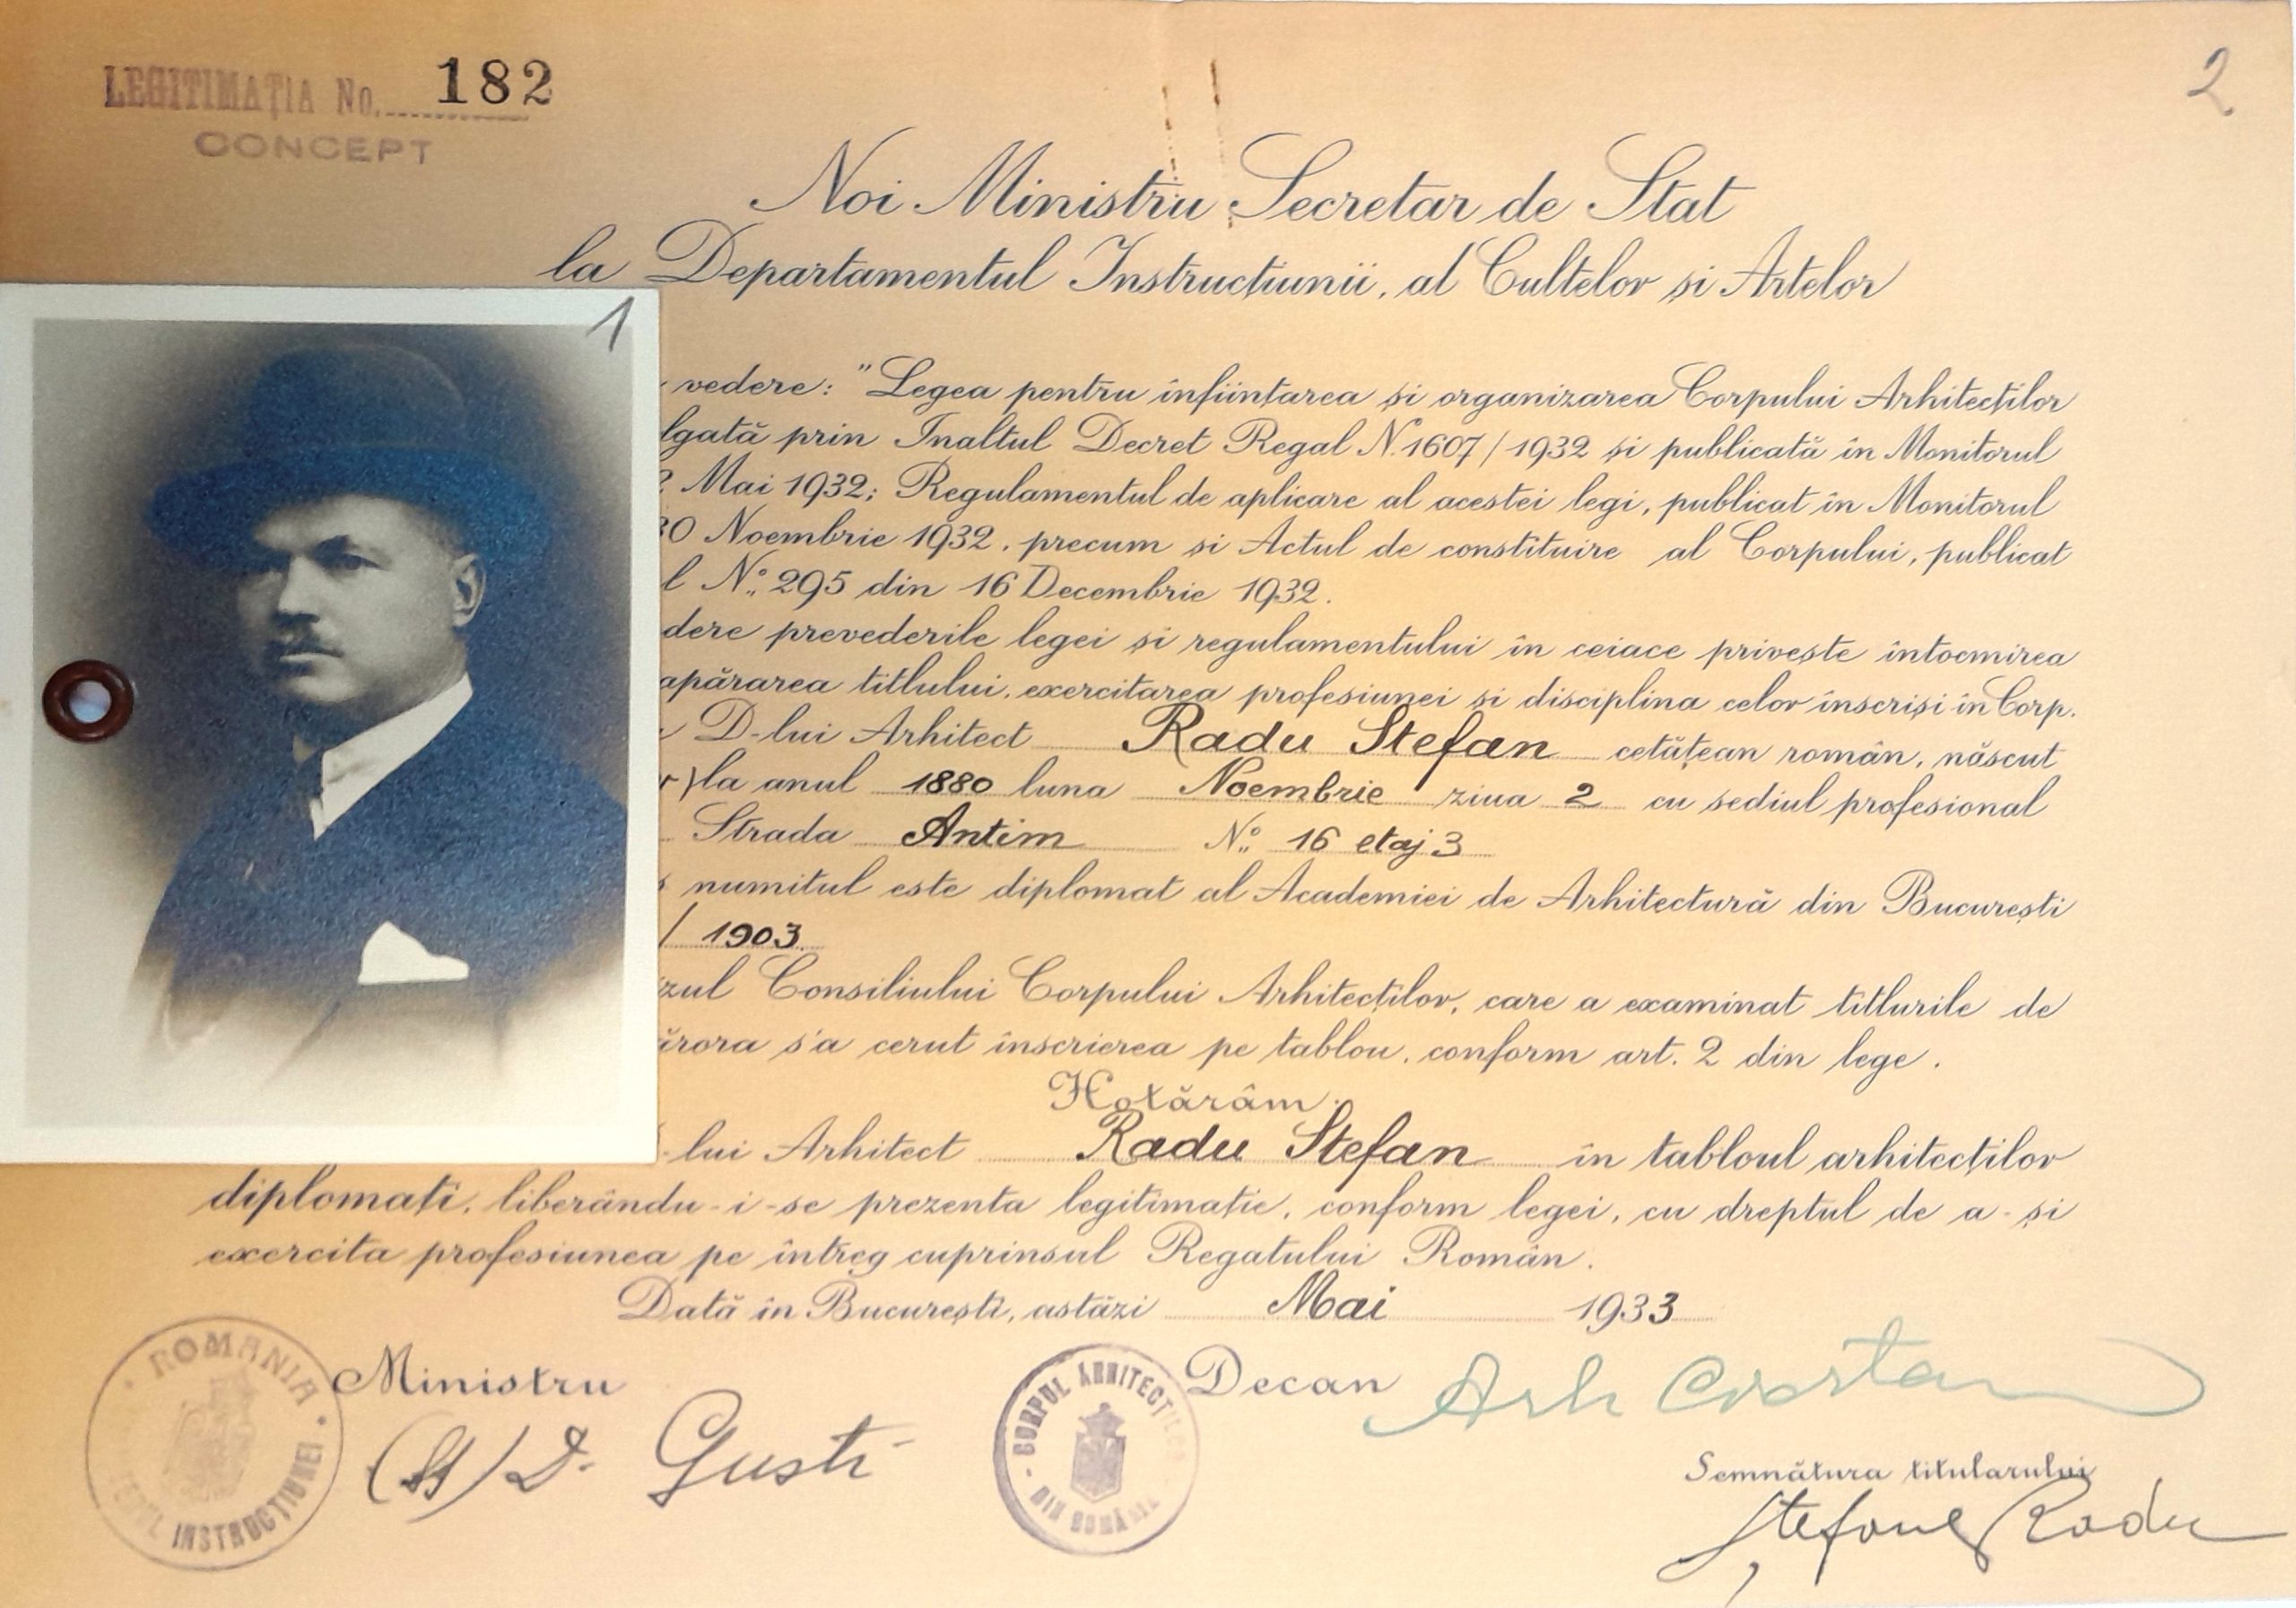 LEGITIMAȚIA No. 182
CONCEPT
2
Noi Ministru Secretar de Stat
la Departamentul Instrucțiunii, al Cultelor și Artelor
1
vedere: "Legea pentru înființarea și organizarea Corpului Arhitecților
lgată prin Inaltul Decret Regal N. 1607/1932 și publicată în Monitorul
Mai 1932; Regulamentul de aplicare al acestei legi, publicat în Monitorul
30 Noembrie 1932, precum si Actul de constituire al Corpului, publicat
l No. 295 din 16 Decembrie 1932.
dere prevederile legei și regulamentului în ceiace privește întocmirea
apărarea titlului, exercitarea profesiunei si disciplina celor înscriși în Corp.
D-lui Arhitect Radu Stefan cetățean român, născut
r) la anul 1880 luna Noembrie ziua 2 cu sediul profesional
Strada Antim No. 16 etaj 3
numitul este diplomat al Academiei de Arhitectură din București
/ 1903.
zul Consiliului Corpului Arhitecților, care a examinat titlurile de
ărora s'a cerut înscrierea pe tablou, conform art. 2 din lege.
Hotărâm:
-lui Arhitect Radu Stefan în tabloul arhitecților
diplomați, liberându-i-se prezenta legitimație, conform legei, cu dreptul de a-și
exercita profesiunea pe întreg cuprinsul Regatului Român.
Dată în București, astăzi Mai 1933
ROMANIA
INSTRUCȚIUNEI
Ministru
D. Gusti
CORPUL ARHITECȚILOR
DIN ROMÂNIA
Decan Arh
Semnătura titularului
Ștefan Radu